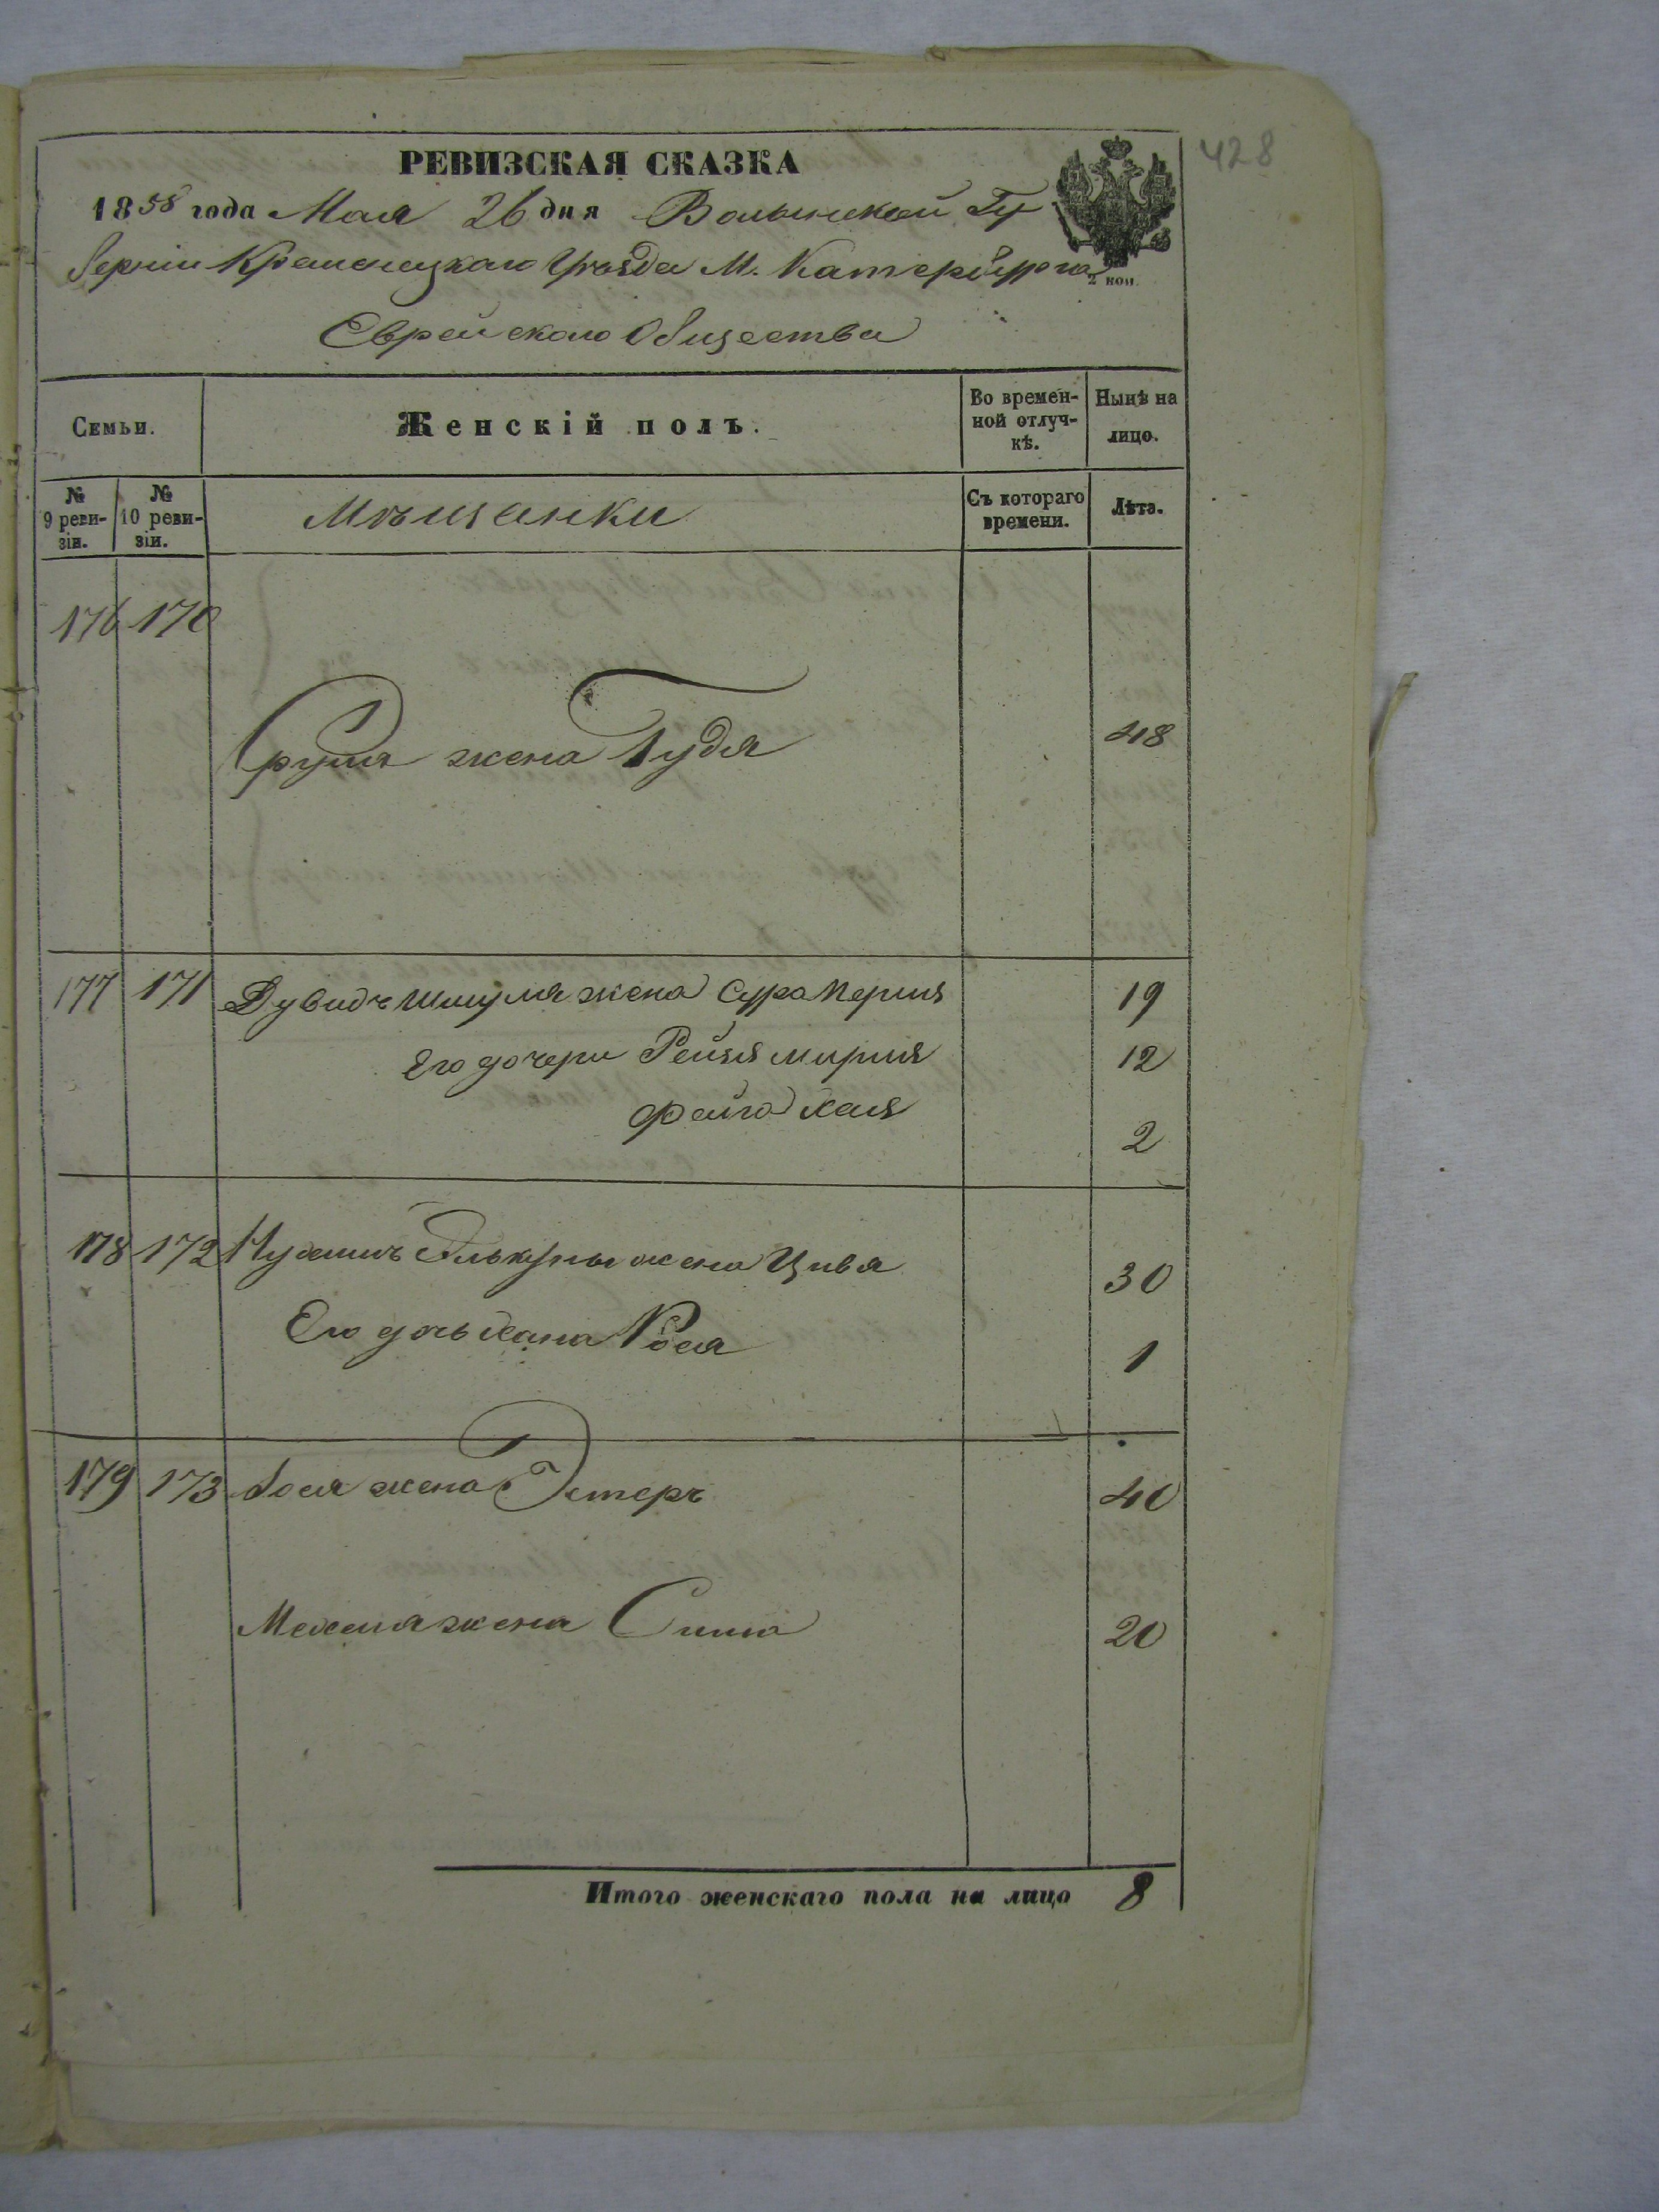 428
РЕВИЗСКАЯ СКАЗКА
1858 года Мая 26 дня Волынской Гу
берніи Кременецкаго Уѣзда М. Катербурга
2 коп.
Еврейского Общества
Семьи.
Женскій полъ.
Во времен-
ной отлуч-
кѣ.
Нынѣ на
лицо.
№
9 реви-
зіи.
№
10 реви-
зіи.
Мѣщанки
Съ котораго
времени.
Лѣта.
176 170
жена Гудя 48
177 171 Дувидъ Шмуля жена Сура Перля 19
Его дочери Рейзя Мирля 12
Файга Хая 2
178 172 жена Цивя 30
Его дочь Хана Рося 1
179 173 жена Эстеръ 40
жена Сима 20
Итого женскаго пола на лицо 8